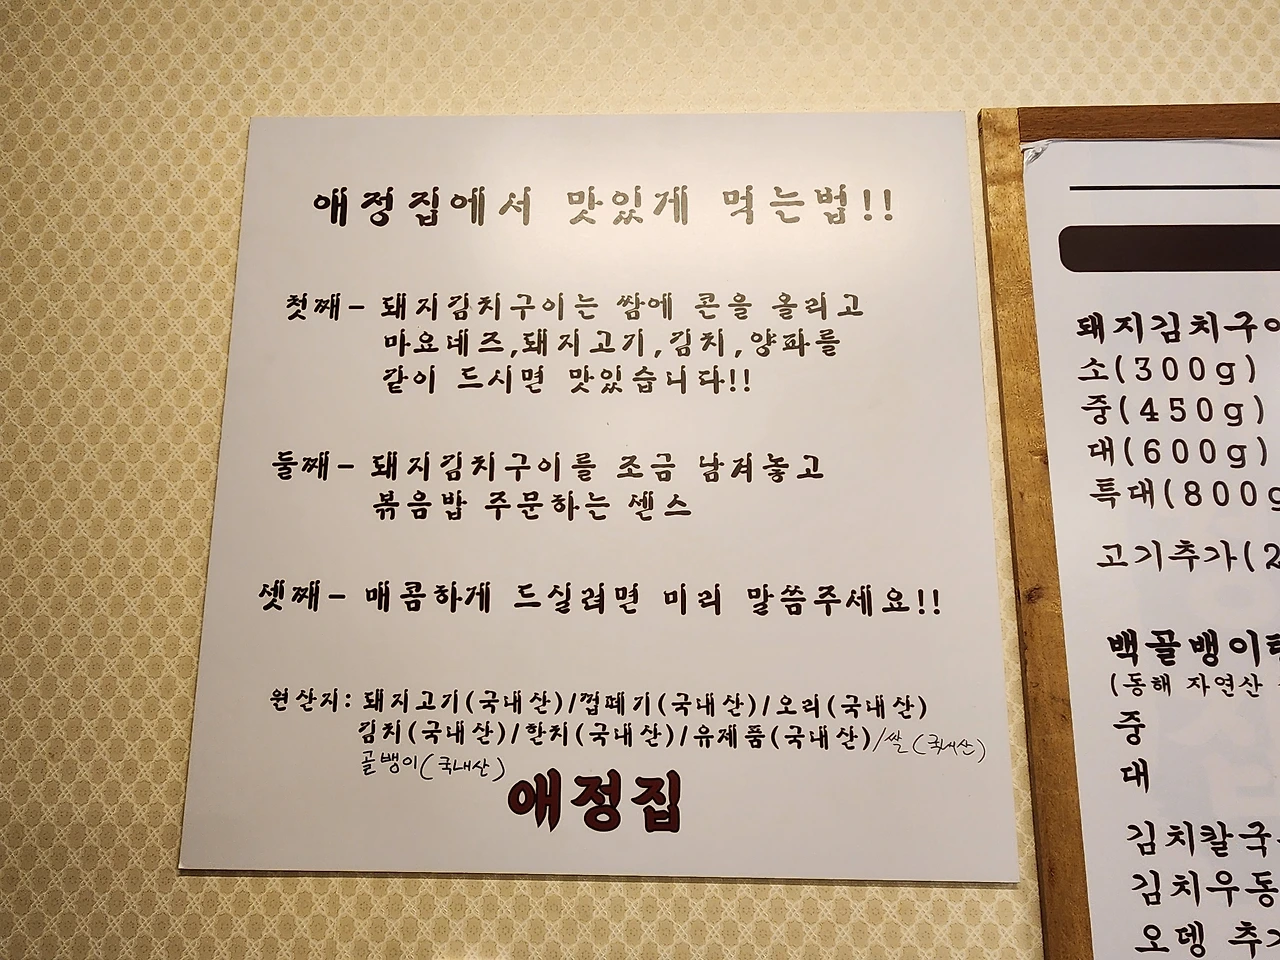 애정집에서 맛있게 먹는법!!
첫째- 돼지김치구이는 쌈에 콘을 올리고
마요네즈,돼지고기,김치,양파를
같이 드시면 맛있습니다!!
둘째- 돼지김치구이를 조금 남겨놓고
볶음밥 주문하는 센스
셋째- 매콤하게 드실려면 미리 말씀주세요!!
원산지: 돼지고기(국내산)/껍떼기(국내산)/오리(국내산)
김치(국내산)/한치(국내산)/유제품(국내산)/쌀(국내산)
골뱅이(국내산)
애정집
돼지김치구이
소(300g)
중(450g)
대(600g)
특대(800g
고기추가(2
백골뱅이
(동해 자연산
중
대
김치칼국
김치우동
오뎅 추가